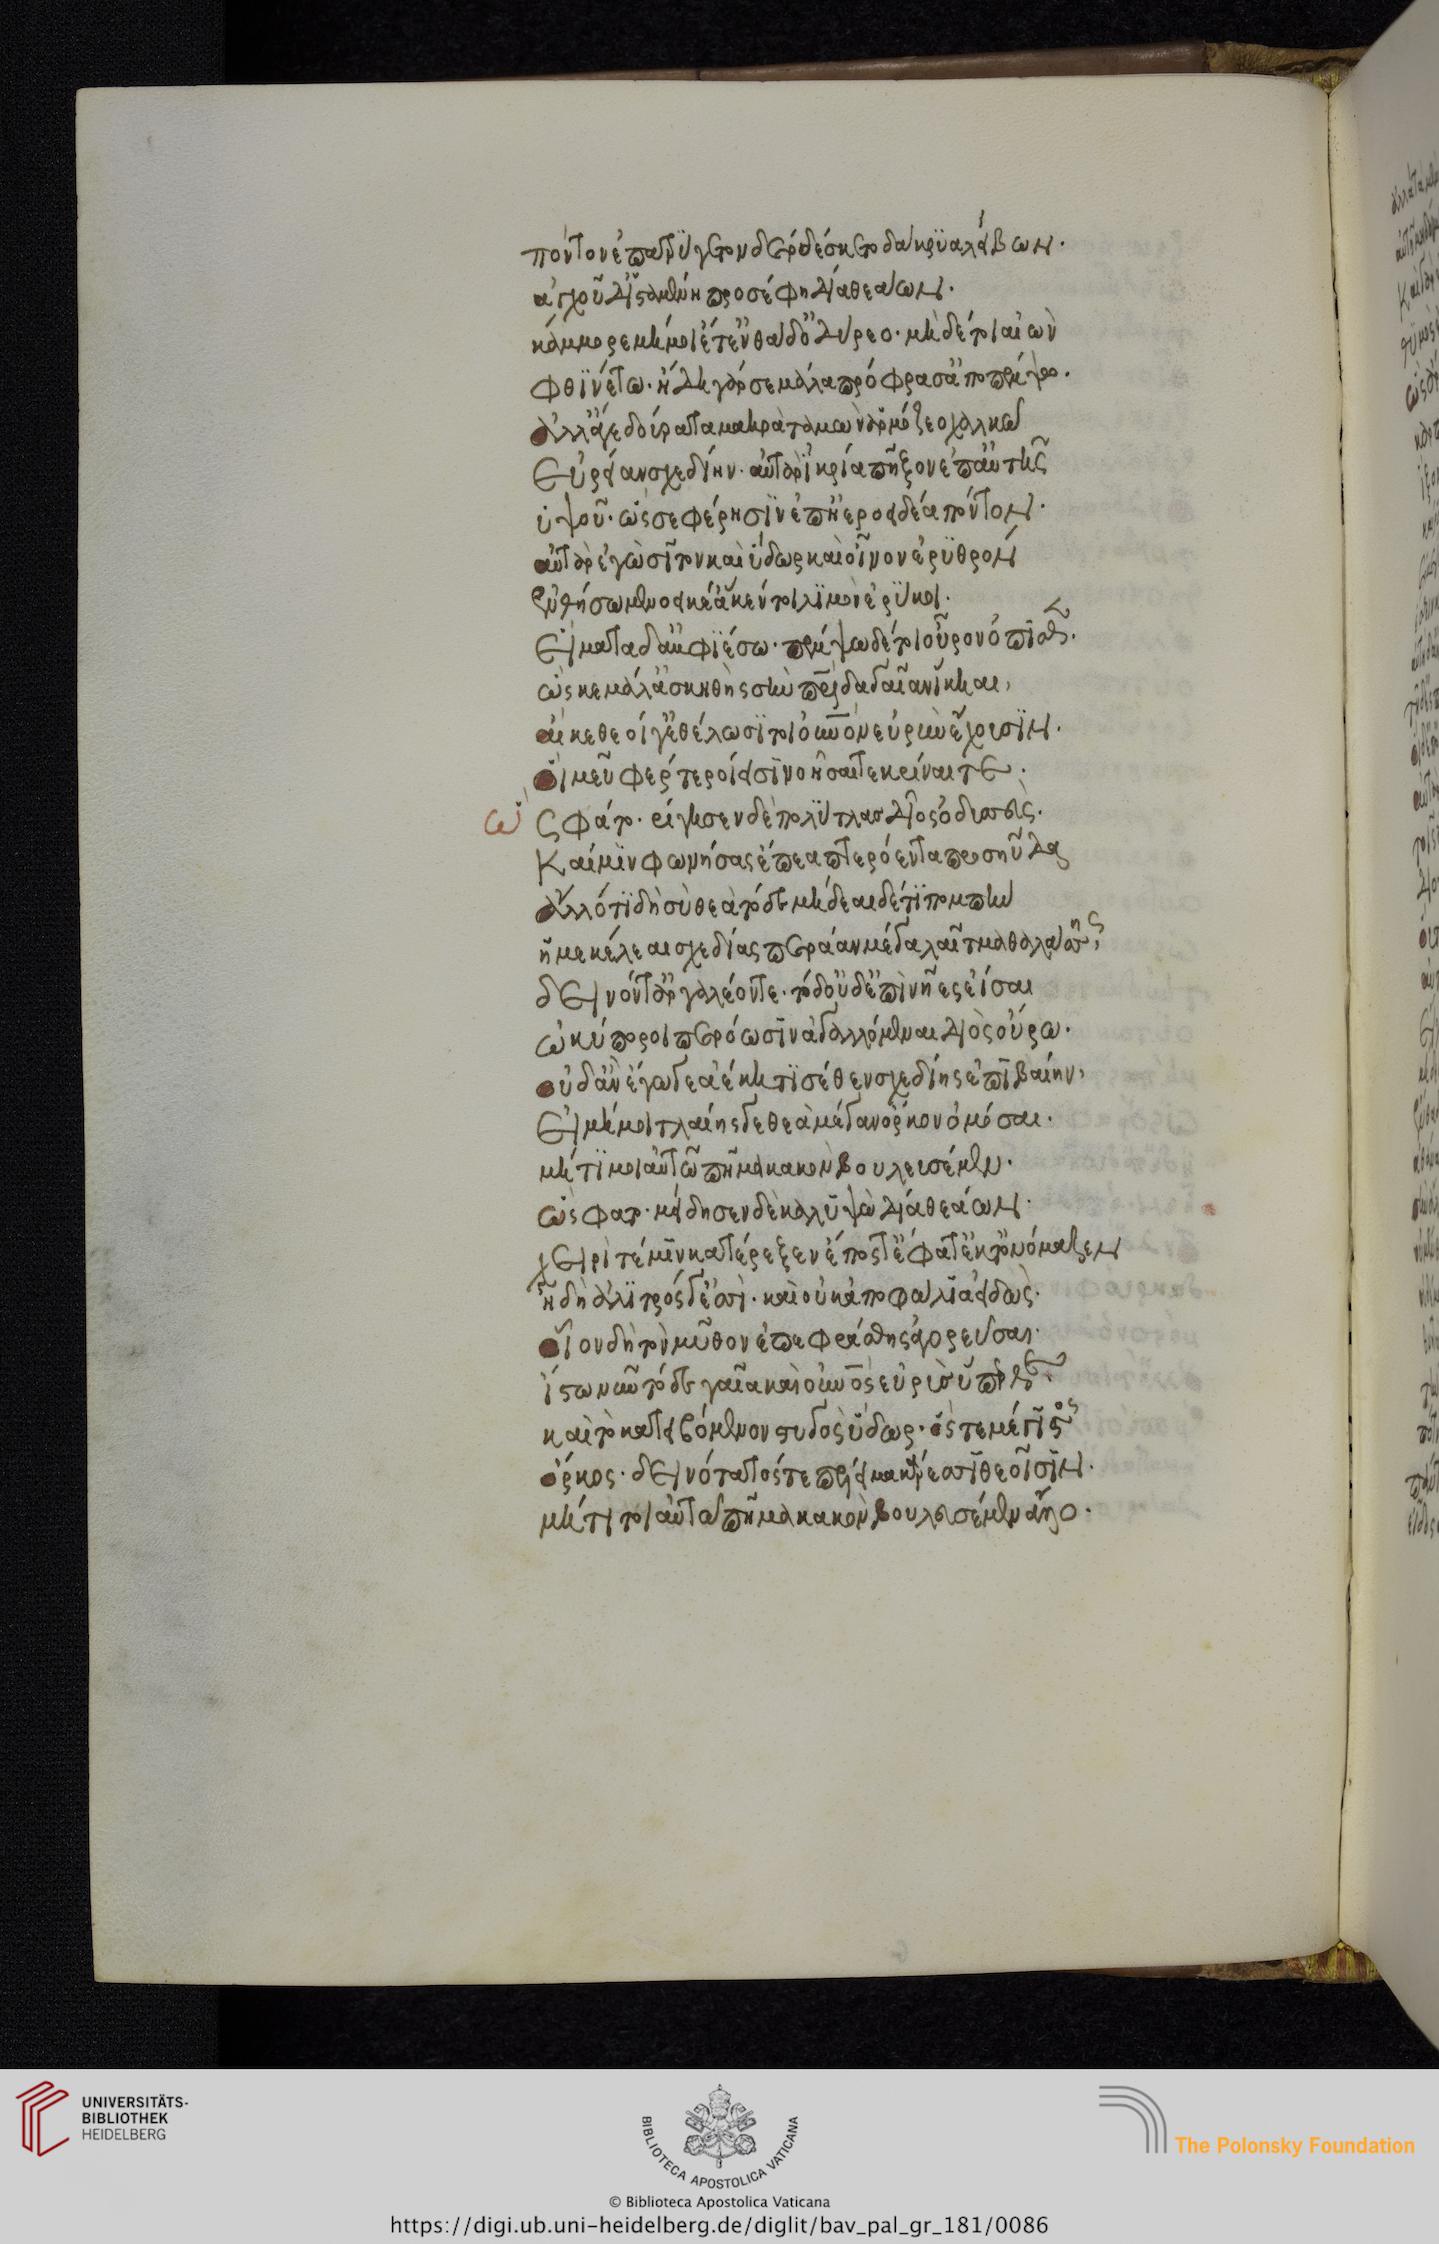 πόντον ἐπ' ἀτρύγετον δερκέσκετο δάκρυα λείβων.
ἀγχοῦ δ' ἱσταμένη προσέφη δῖα θεάων.
κάμμορε μή μοι ἔτ' ἐνθάδ' ὀδύρεο. μηδέ τοι αἰὼν
φθινέτω. ἤδη γάρ σε μάλα πρόφρασσ' ἀποπέμψω.
ἀλλ' ἄγε δούρατα μακρὰ ταμὼν ἁρμόζεο χαλκῶ
εὐρεῖαν σχεδίην. αὐτὰρ ἴκρια πῆξον ἐπ' αὐτῆς
ὑψοῦ. ὥς σε φέρησιν ἐπ' ἠεροειδέα πόντον.
αὐτὰρ ἐγὼ σῖτον καὶ ὕδωρ καὶ οἶνον ἐρυθρὸν
ἐνθήσω μενοεικέ' ἅ κέν τοι λιμὸν ἐρύκοι.
εἵματα δ' ἀμφιέσω. πέμψω δέ τοι οὖρον ὄπισθεν.
ὥς κε μάλ' ἀσκηθὴς σὴν πατρίδα γαῖαν ἵκηαι,
αἴ κε θεοί γ' ἐθέλωσι τοὶ οὐρανὸν εὐρὺν ἔχουσιν.
οἵ μευ φέρτεροί εἰσι νοῆσαί τε κρῖναί τε.
ὣς φάτο. ῥίγησεν δὲ πολύτλας δῖος ὀδυσσεύς.
καί μιν φωνήσας ἔπεα πτερόεντα προσηύδα
ἄλλό τι δὴ σὺ θεὰ τόδε μήδεαι οὐδέ τι πομπὴν
ἥ με κέλεαι σχεδίη περάαν μέγα λαῖτμα θαλάσσης,
δεινόν τ' ἀργαλέον τε. τόδ' οὐδ' ἐπὶ νῆες ἐῖσαι
ὠκύποροι περόωσιν ἀγαλλόμεναι διὸς οὔρω.
οὐδ' ἂν ἔγωγε ἀέκητι σέθεν σχεδίης ἐπιβαίην,
εἰ μή μοι τλαίης γε θεὰ μέγαν ὅρκον ὀμόσσαι.
μή τί μοι αὐτῶ πῆμα κακὸν βουλευσέμεν.
ὣς φάτο. μείδησεν δὲ καλυψὼ δῖα θεάων.
χειρί τέ μιν κατέρεξεν ἔπος τ' ἔφατ' ἔκ τ' ὀνόμαζεν
ἦ δὴ ἀλιτρός γ' ἐσσί. καὶ οὐκ ἀποφώλια εἰδώς.
οἷον δὴ τὸν μῦθον ἐπεφράσθης ἀγορεῦσαι.
ἴστω νῦν τόδε γαῖα καὶ οὐρανὸς εὐρὺς ὕπερθεν.
καὶ τὸ κατειβόμενον στυγὸς ὕδωρ. ὅς τε μέγιστος
ὅρκος. δεινότατός τε πέλει μακάρεσσι θεοῖσιν.
μή τί τοι αὐτῶ πῆμα κακὸν βουλευσέμεν ἄλλο.
UNIVERSITÄTS-
BIBLIOTHEK
HEIDELBERG
BIBLIOTECA APOSTOLICA VATICANA
The Polonsky Foundation
© Biblioteca Apostolica Vaticana
https://digi.ub.uni-heidelberg.de/diglit/bav_pal_gr_181/0086